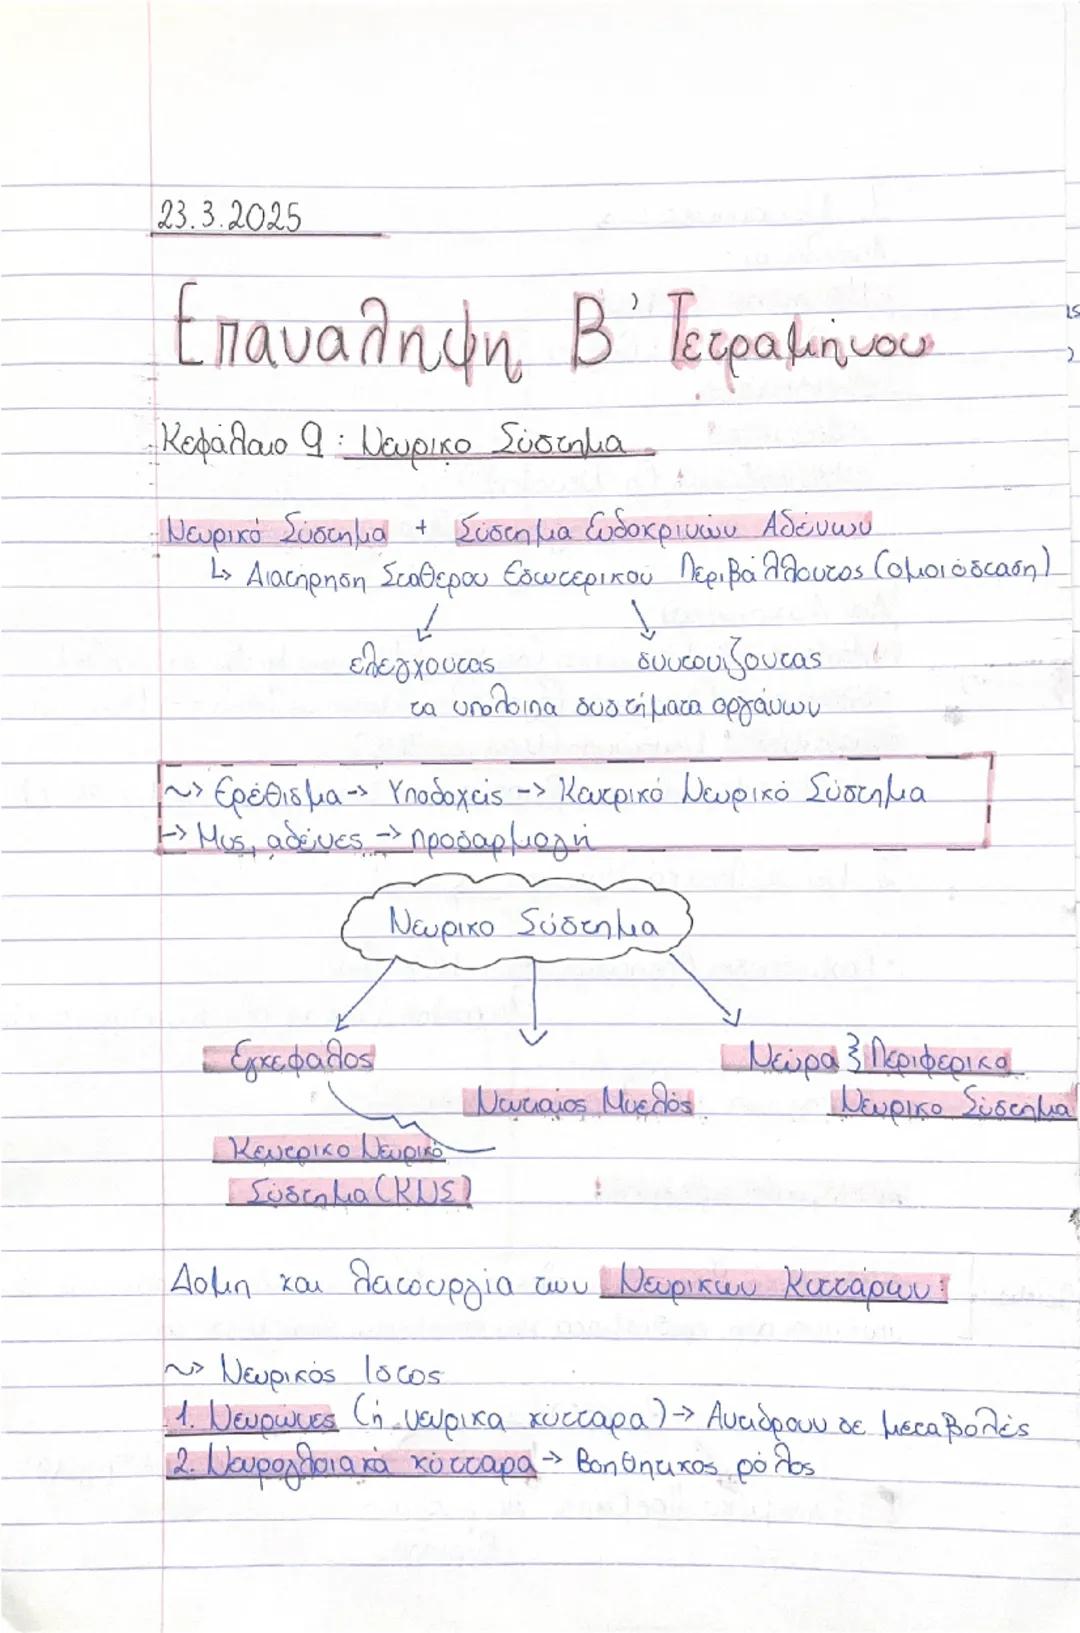 23.3.2025
Επαναληψη Β' Τετραμήνου
Κεφάλαιο 9: Νευρικο Σύστημα
Νευρικό Σύστημα + Σύστημα Ενδοκρινών Αδένων
↳ Διατήρηση Σταθερου Εσωτερικού Περιβάλλοντος (ομοιόσταση)
ελεγχοντας συντονιζοντας
τα υπολοιπα συστήματα οργάνων
~> Ερέθισμα -> Υποδοχείς -> Κεντρικό Νευρικό Σύστημα
-> Μυς, αδένες -> προσαρμογή
Νευρικο Σύστημα
Εγκεφαλος Νεύρα } Περιφερικο
Νωτιαίος Μυελός Νευρικο Σύστημα
Κεντρικο Νευρικό
Σύστημα (ΚΝΣ)
Δομη και λειτουργία των Νευρικων Κυττάρων:
~> Νευρικός Ιστος
1. Νευρώνες (ή νευρικα κύτταρα) -> Αντιδρουν σε μεταβολές
2. Νευρογλοιακά κύτταρα -> Βοηθητικος ρόλος